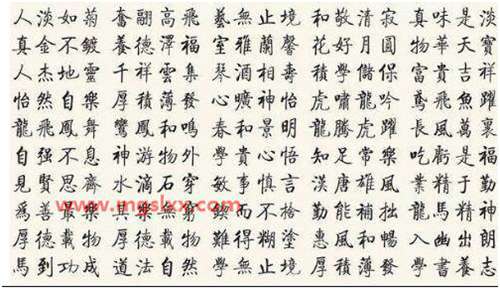 人淡如菊 奮翮高飛 藝無止境 和敬清寂 真味是淡
真金不鍍 養德澤福 室雅蘭馨 花好月圓 物華天寶
人杰地靈 千祥雲集 琴酒 壽 學儲 富貴吉祥
怡然自樂 厚積薄發 心曠神怡 虎嘯龍吟 鳶飛魚躍
龍飛鳳舞 鸞鳳和鳴 春和景明 龍騰虎躍 長風萬裏
自强不息 神游物外 學貴心悟 知足常樂 吃虧是福
見賢思齊 水滴石穿 敏事慎言 漢唐雄風 業精於勤
為善最樂 無窮 而不 勤能補拙 龍馬精神
厚德載物 厚德載物 難得糊塗 惠風和暢 入幽出朗
馬到功成 道法自然 學無止境 厚積薄發 學書養